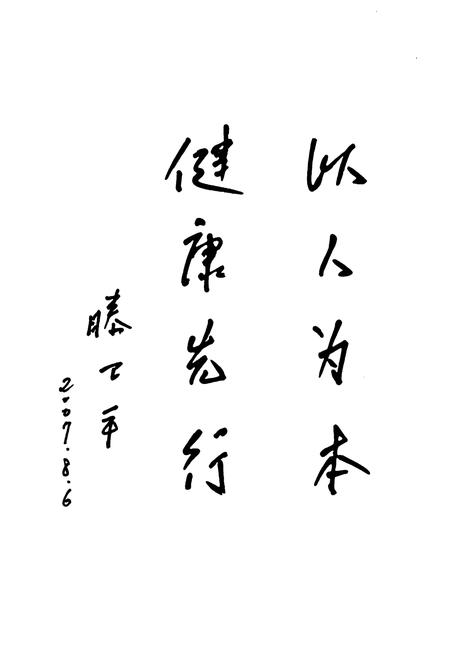 以人为本
健康先行
滕卫平
2007.8.6